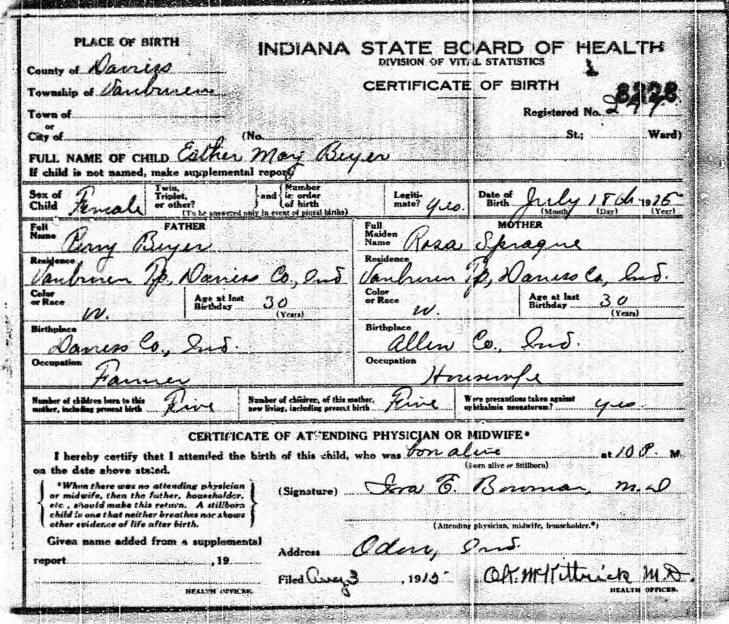 PLACE OF BIRTH
INDIANA STATE BOARD OF HEALTH
DIVISION OF VITAL STATISTICS
CERTIFICATE OF BIRTH
1
County of Daviess
Township of Vanburen
Town of
or
City of
(No. St.; Ward)
Registered No.
FULL NAME OF CHILD Esther May Beyer
If child is not named, make supplemental report
Sex of Child Female
Twin, Triplet, or other? } and { Number in order of birth
(To be answered only in event of plural births)
Legiti-mate? yes.
Date of Birth July 18th 1915
(Month) (Day) (Year)
FATHER
Full Name Perry Beyer
Residence
Vanburen Tp, Daviess Co, Ind
Color or Race W.
Age at last Birthday 30
(Years)
Birthplace
Daviess Co., Ind.
Occupation
Farmer
MOTHER
Full Maiden Name Rosa Sprague
Residence
Vanburen Tp, Daviess Co, Ind.
Color or Race W.
Age at last Birthday 30
(Years)
Birthplace
Allen Co., Ind.
Occupation
Housewife
Number of children born to this mother, including present birth Five
Number of children, of this mother, now living, including present birth Five
Were precautions taken against ophthalmia neonatorum? yes
CERTIFICATE OF ATTENDING PHYSICIAN OR MIDWIFE*
I hereby certify that I attended the birth of this child, who was born alive at 10 P. M.
(Born alive or Stillborn)
on the date above stated.
*When there was no attending physician
or midwife, then the father, householder,
etc., should make this return. A stillborn
child is one that neither breathes nor shows
other evidence of life after birth.
(Signature) Ira E. Bowman, M.D
(Attending physician, midwife, householder.*)
Given name added from a supplemental
report , 19
HEALTH OFFICER.
Address Odon, Ind.
Filed Aug 3, 1915 McKittrick M.D.
HEALTH OFFICER.